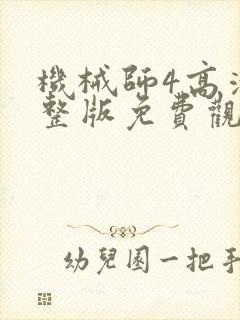 機械師4高清
整版免費觀
幼兒園一把手